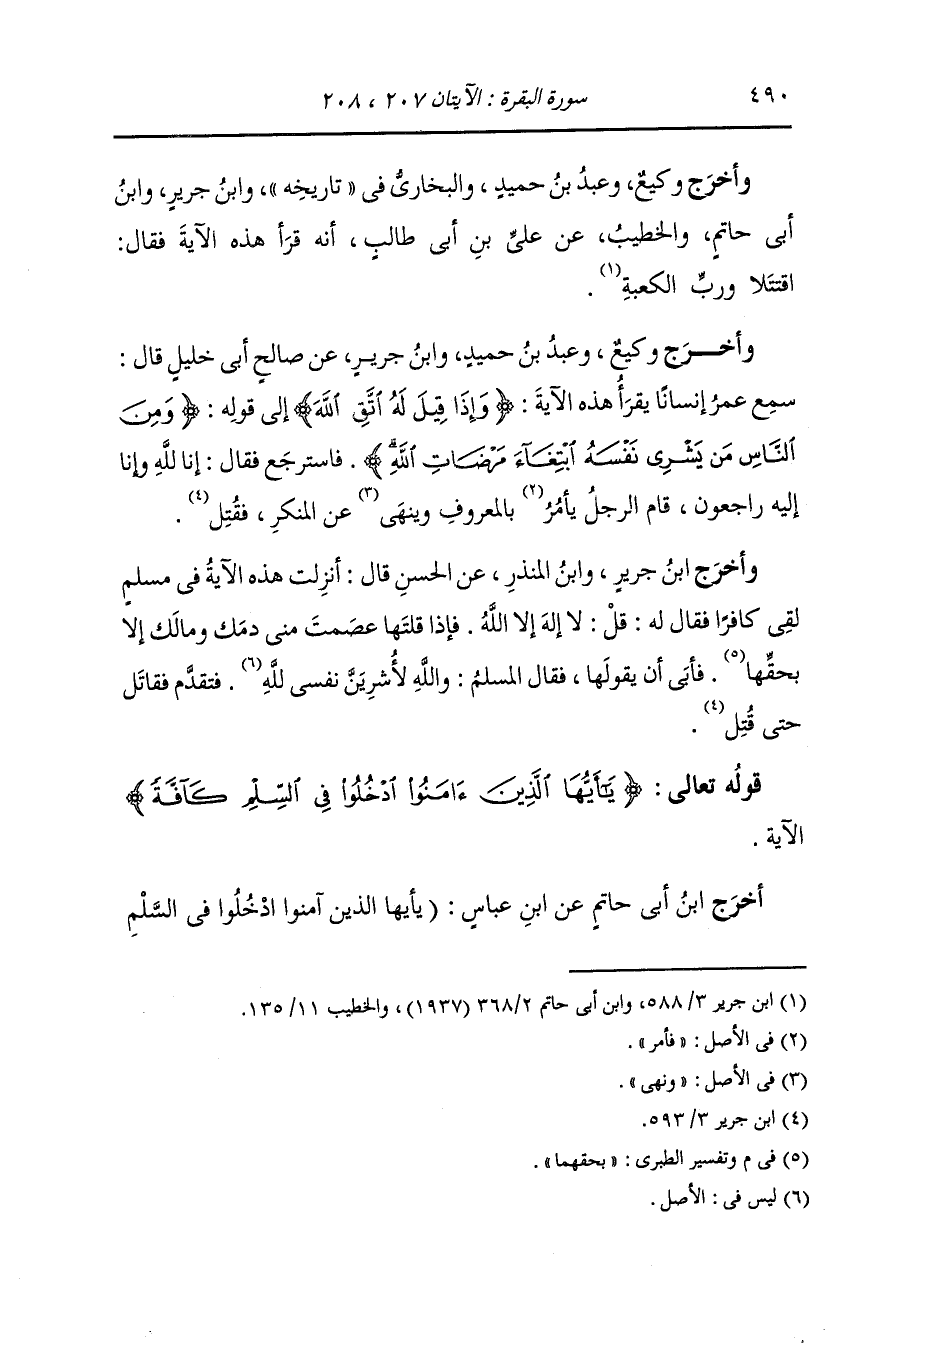 ٤٩٠ سورة البقرة : الآيتان ٢٠٧ ، ٢٠٨
وأخرَج وكيعٌ، وعبدُ بنُ حميدٍ ، والبخارىُّ فى « تاريخِه »، وابنُ جريرٍ، وابنُ
أبى حاتمٍ، والخطيبُ، عن علىِّ بنِ أبى طالبٍ ، أنه قرَأ هذه الآيةَ فقال:
اقتتَلا وربِّ الكعبةِ(١) .
وأخـــرَج وكيعٌ ، وعبدُ بنُ حميدٍ، وابنُ جريـرٍ، عن صالحٍ أبى خليلٍ قال :
سمِع عمرُ إنسانًا يقرَأُ هذه الآيةَ : ﴿ وَإِذَا قِيلَ لَهُ ٱتَّقِ ٱللَّهَ﴾ إلى قولِه : ﴿ وَمِنَ
ٱلنَّاسِ مَن يَشْـرِى نَفْسَهُ ٱبْتِغَآءَ مَرْضَاتِ ٱللَّهِۗ ﴾ . فاسترجَع فقال : إنا للَّهِ وإنا
إليه راجعون ، قام الرجلُ يأمُرُ(٢) بالمعروفِ وينهَى(٣) عن المنكرِ ، فقُتِل(٤) .
وأخرَج ابنُ جريرٍ ، وابنُ المنذرِ ، عن الحسنِ قال : أنزِلت هذه الآيةُ فى مسلمٍ
لقِى كافرًا فقال له : قلْ : لا إلهَ إلا اللَّهُ . فإذا قلتَها عصَمتَ منى دمَك ومالَك إلا
بحقِّها(٥) . فأبَى أن يقولَها ، فقال المسلمُ : واللَّهِ لأُشرِيَنَّ نفسى للَّهِ(٦) . فتقدَّم فقاتَل
حتى قُتِل(٤) .
قولُه تعالى : ﴿ يَـٰٓأَيُّهَا ٱلَّذِينَ ءَامَنُوا۟ ٱدْخُلُوا۟ فِى ٱلسِّلْمِ كَآفَّةً ﴾
الآية .
أخرَج ابنُ أبى حاتمٍ عن ابنِ عباسٍ : ( يأيها الذين آمنوا ادْخُلُوا فى السَّلْمِ
(١) ابن جرير ٣/ ٥٨٨، وابن أبى حاتم ٣٦٨/٢ (١٩٣٧) ، والخطيب ١١/ ١٣٥.
(٢) فى الأصل : « فأمر » .
(٣) فى الأصل : « ونهى » .
(٤) ابن جرير ٣/ ٥٩٣.
(٥) فى م وتفسير الطبرى : « بحقهما » .
(٦) ليس فى : الأصل .